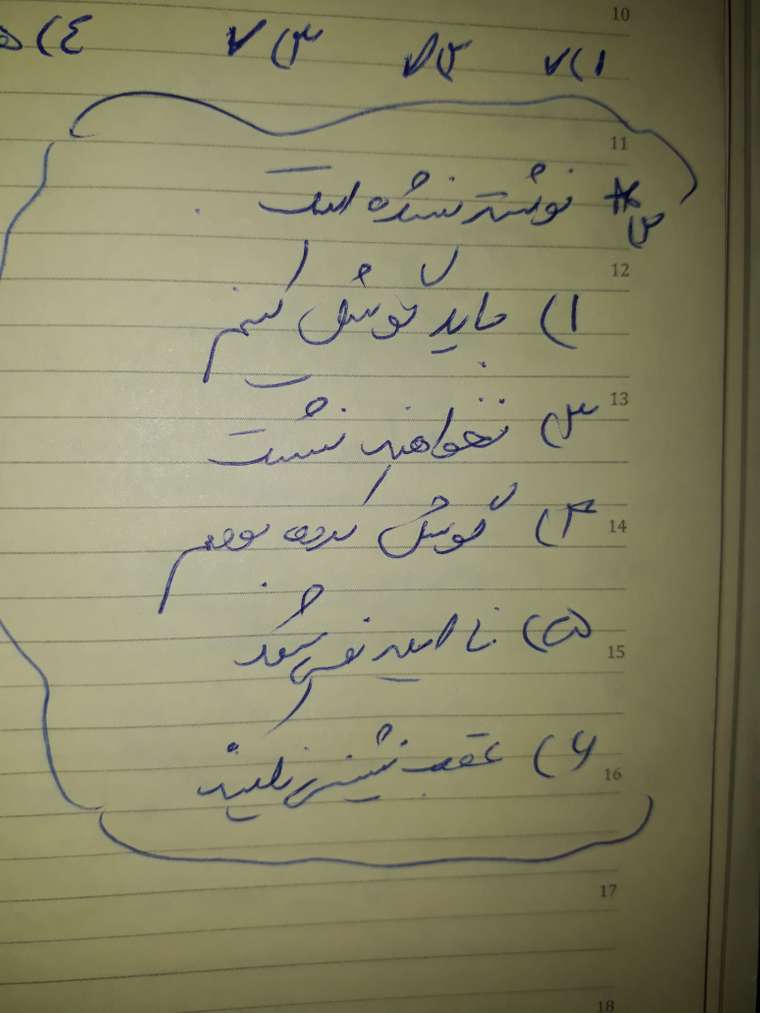 ۱) ✓ ۲) ✓ ۳) ✓ ٤)
* ۲) نوشته نشده است
۱) باید گوش کنم
۳) نخواهند نشست
۴) گوش کرده بودم
۵) نا امید نمی شود
۶) عقب نشینی نکنید
10
11
12
13
14
15
16
17
18